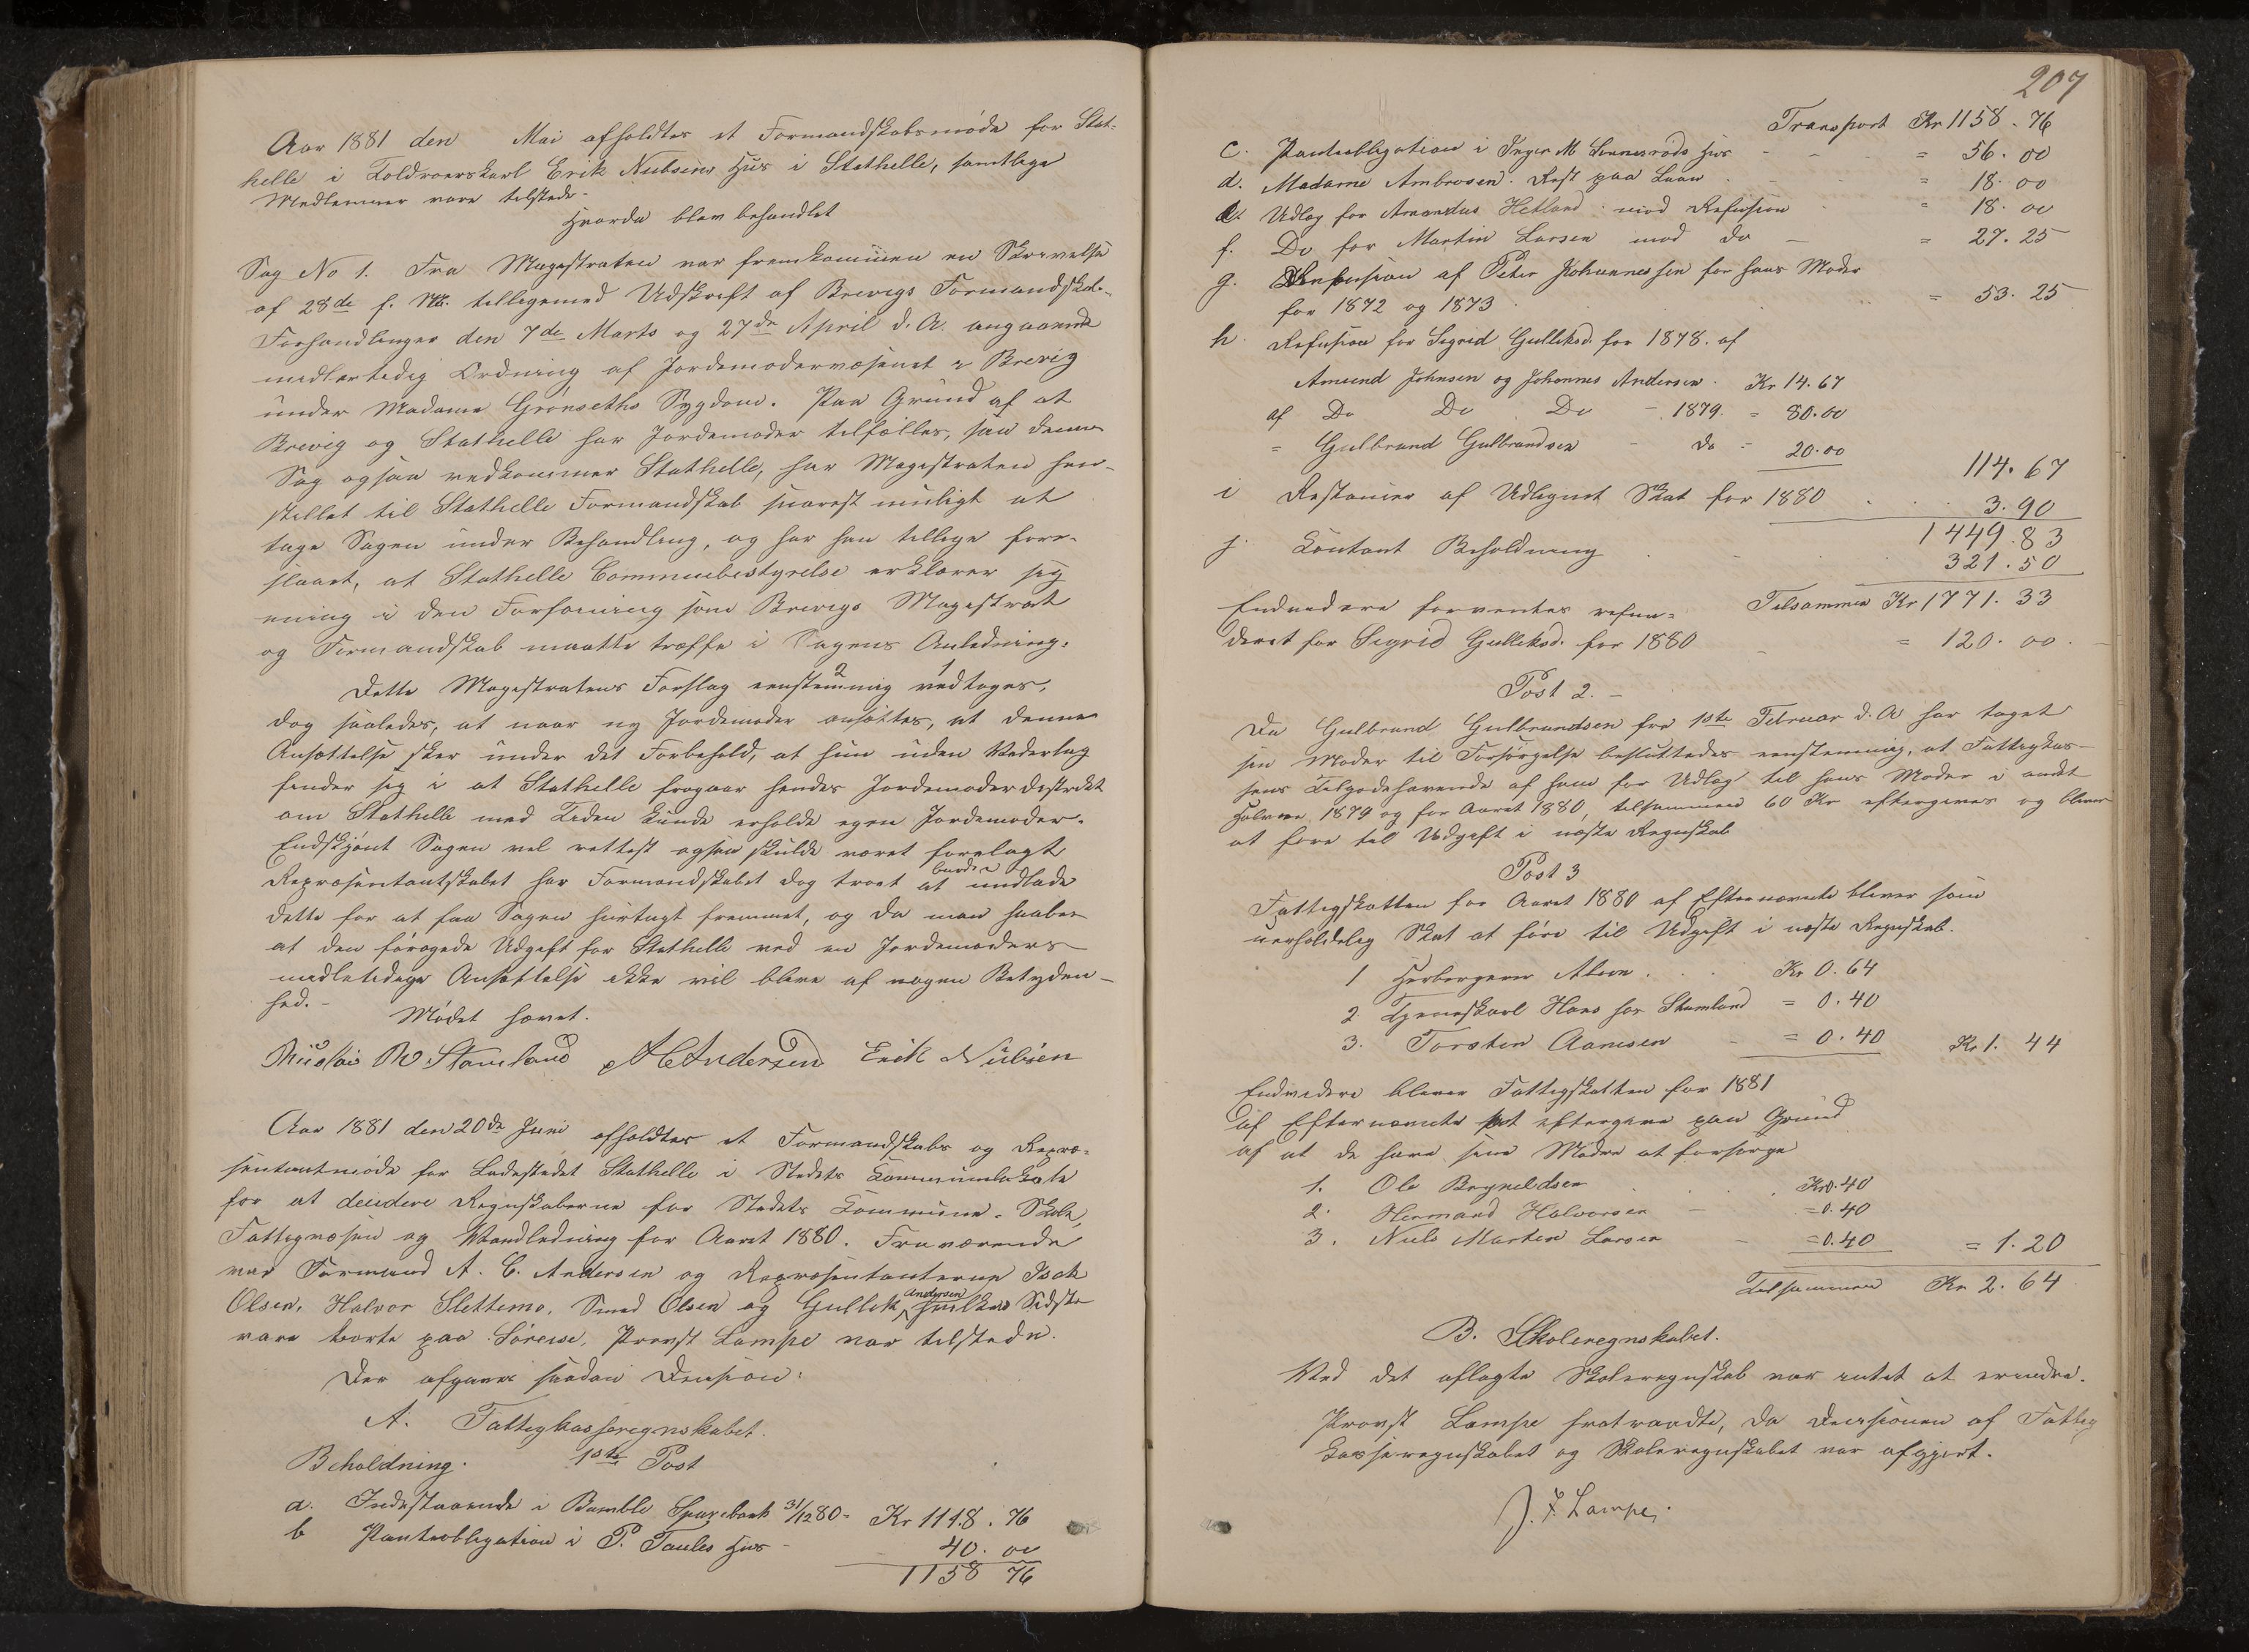 Aar 1881 den Mai afholdtes et Formandskabsmøde for Stat-
helle i Toldroerskarl Erik Nielsens Huus i Stathelle, samtlige
Medlemmer vare tilstede.
Hvorda blev behandlet
Sag No 1. Fra Magistraten var fremkommen en Skrivelse
af 28de f. M. tilligemed Udskrift af Brevigs Formandskabs-
Forhandlinger den 7de Marts og 27de April d. A. angaaende
midlertidig Ordning af Jordemodervæsenet i Brevig
under Madame Grønseths Sygdom. Paa Grund af at
Brevig og Stathelle har Jordemoder tilfælles, saa denne
Sag ogsaa vedkommer Stathelle, har Magistraten hen-
stillet til Stathelle Formandskab snarest muligt at
tage Sagen under Behandling, og har han tillige fore-
slaaet, at Stathelle Communebestyrelse erklærer sig
enig i den Forføining som Brevigs Magistrat
og Formandskab maatte træffe i Sagens Anledning.
Dette Magistratens Forslag eenstemmig 2 vedtoges 1,
dog saaledes, at naar ny Jordemoder ansættes, at denne
Ansættelse sker under det Forbehold, at hun uden Vederlag
finder sig i at Stathelle fragaar hendes Jordemoderdistrikt
om Stathelle med Tiden kunde erholde egen Jordemoder.
Endskjønt Sagen vel rettest ogsaa skulde været forelagt
Repræsentantskabet har Formandskabet dog troet at burde undlade
dette for at faa Sagen hurtigt fremmet, og da man haaber
at den forøgede Udgift for Stathelle ved en Jordemoders
midletidige Ansættelse ikke vil blive af nogen Betyden-
hed.-
Mødet hævet.
Nicolai W Stamland A C Andersen Erik Nielsen
Aar 1881 den 20de Juni afholdtes et Formandskabs og Repræ-
sentantmøde for Ladestedet Stathelle i Stedets Communelokale
for at decidere Regnskaberne for Stedets Commune- Skole,
Fattigvæsen og Vandledning for Aaret 1880. Fraværende
var Formand A. C. Andersen og Repræsentanterne Isak
Olsen, Halvor Slettemo, Smed Olsen og Gullik Andersen hvilken Sidste
vare borte paa Søreise. Provst Lampe var tilstede.
Der afgaves saadan Decision:
A. Fattigkasseregnskabet.
Beholdning. 1ste Post
a. Indestaaende i Bamble Sparebank 31/12 80 = Kr 1118. 76
b Panteobligation i P. Taules Hus - 40. 00
1158 76
207
Transport Kr 1158. 76
c. Panteobligation i Inger M Hus - = 56. 00
d. Madame Ambrosen. Rest paa Laan = 18. 00
e. Udlag for Amandus Hetland mod Refusion = 18. 00
f. Do for Martin Larsen mod do = 27. 25
g. Refusion af Peter Johannessen for hans Moder
for 1872 og 1873 = 53. 25
h. Refusion for Sigrid Gulliksd. for 1878. af
Amund Johnsen og Johannes Andersen. Kr 14. 67
af Do Do Do - 1879. = 80. 00
= Gulbrand Gulbrandsen - do = 20. 00
114. 67
i Restancer af Udlignet Skat for 1880 3. 90
1449. 83
j. Contant Beholdning 321. 50
Tilsammen Kr 1771. 33
Endvidere forventes refun-
deret for Sigrid Gulliksd. for 1880 = 120. 00.
Post 2. -
Da Gulbrand Gulbrandsen fra 1ste Februar d. A har taget
sin Moder til Forsørgelse besluttedes eenstemmig, at Fattigkas-
sens Tilgodehavende af ham for Udlag til hans Moder i andet
Halvaar 1879 og for Aaret 1880, tilsammen 60 Kr eftergives og bliver
at føre til Udgift i næste Regnskab
Post 3
Fattigskatten for Aaret 1880 af Efternævnte bliver som
uerholdelig Skat at føre til Udgift i næste Regnskab.
1 Kr 0. 64
2 Tjeneskarl Hans hos Stamland = 0. 40
3. Torsten Aanesen = 0. 40 Kr 1. 44
Endvidere bliver Fattigskatten for 1881
af Efternævnte at eftergive paa Grund
af at de have sine Mødre at forsørge
1. Ole Brynildsen Kr 0. 40
2. Hermand Halvorsen = 0. 40
3. Niels Martin Larsen = 0. 40 = 1. 20
Tilsammen Kr 2. 64
B. Skoleregnskabet.
Ved det aflagte Skoleregnskab var intet at erindre.
Provst Lampe fratraadte, da Decisionen af Fattig
kasseregnskabet og Skoleregnskabet var afgjort.
J. F. Lampe.